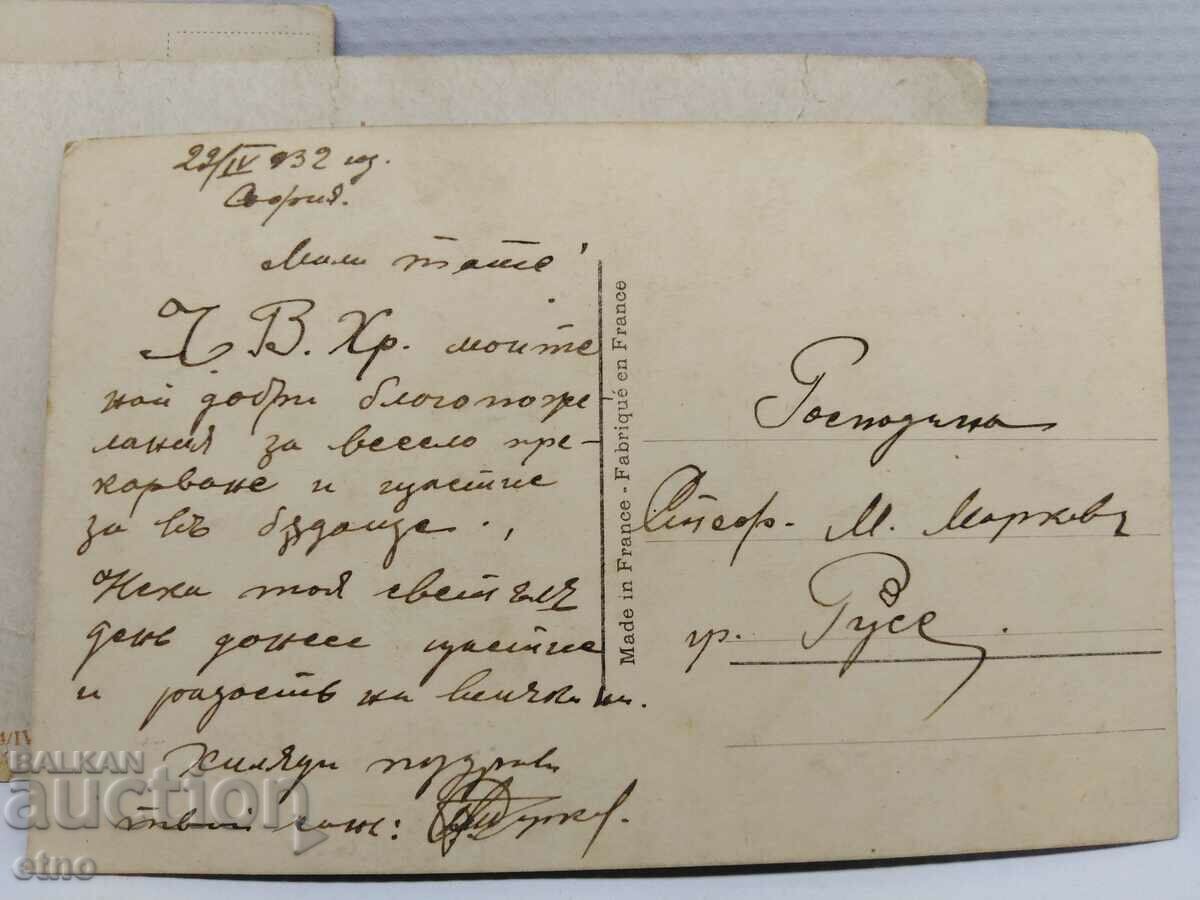 22/IV 932 год.
София.
Мили тате!
Ч. В. Хр. моите
най добри благопоже
лания за весело пре-
карване и щастие
за въ бѫдаще.,
Нека тоя светълъ
день донесе щастие
и радость на всички ни.
Хиляди поздрави
твой синъ: Марков.
Made in France - Fabriqué en France
Господина
Стеф. М. Марковъ
гр. Русе
4/IV
BALKAN
auction
etno